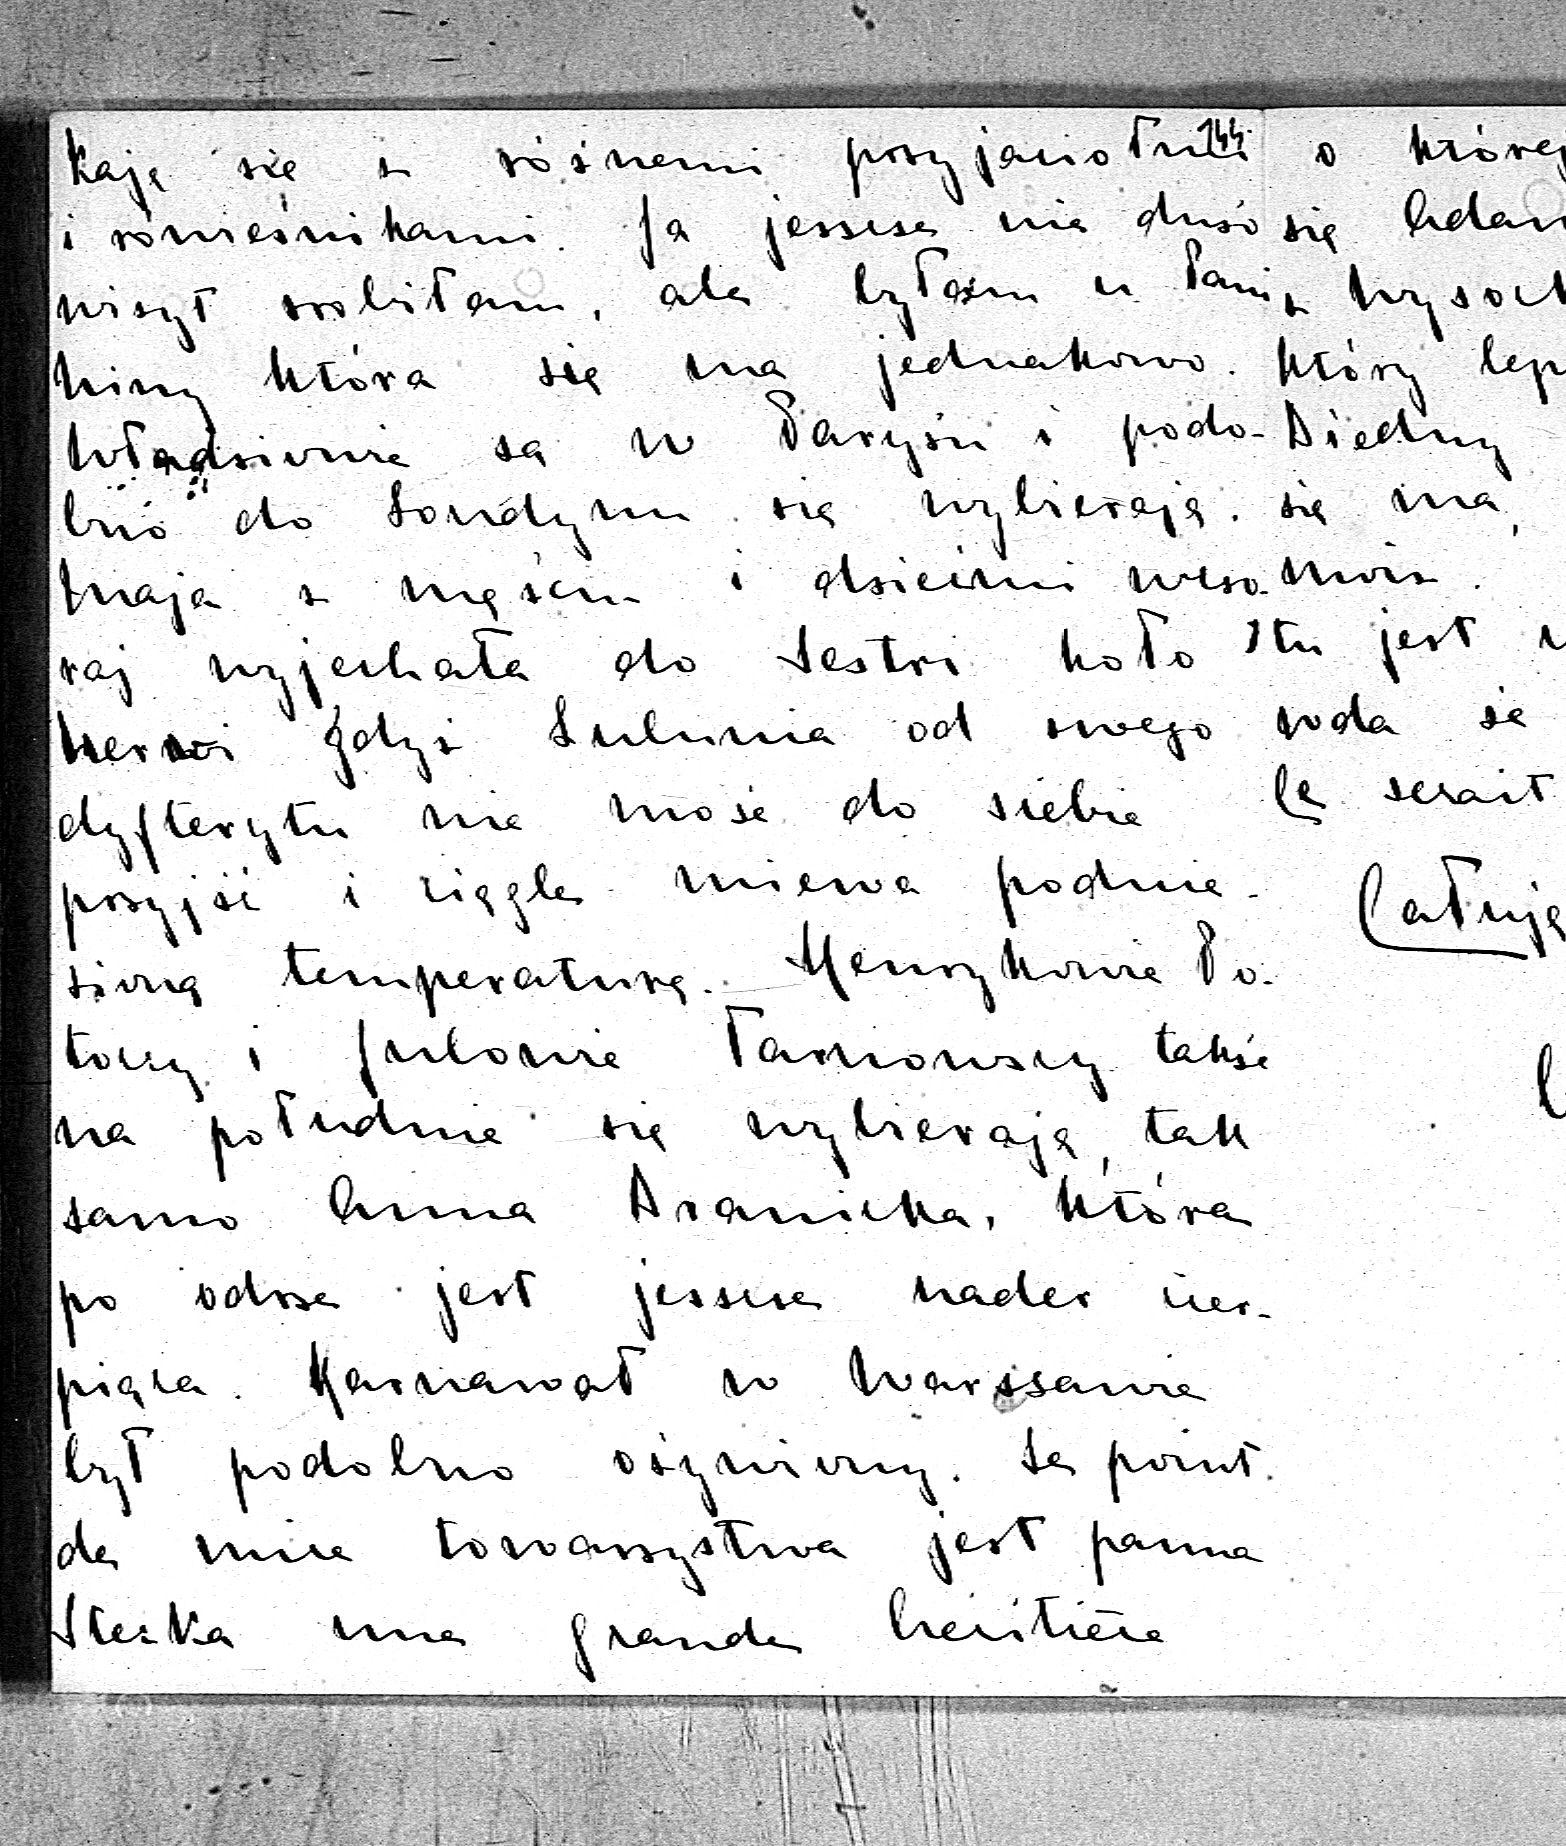 144.
kają się z różnemi przyjaciołmi
i rówieśnikami. Ja jeszcze nie dużo
wizyt zrobiłam, ale byłam u Pani
która się ma jednakowo.
Władziowie są w Paryżu i podo-
bno do Londynu się wybierają.
Maja z mężem i dziećmi wczo-
raj wyjechała do Sestri koło
Nerwi gdyż Lulunia od swego
dyfterytu nie może do siebie
przyjść i ciągle miewa podnie-
sioną temperaturę. Henrykowie Po-
toccy i Julowie Tarnowscy także
na południe się wybierają, tak
samo Anna Branicka, która
po odrze jest jeszcze nader cier-
piąca. Karnawał w Warszawie
był podobno ożywiony. Le point
de mire towarzystwa jest panna
une grande héritière
o której
się Adam
z Wysock
który lep
Biedny
się ma,
mois.
tu jest w
woda się
Ce serait
Całuję